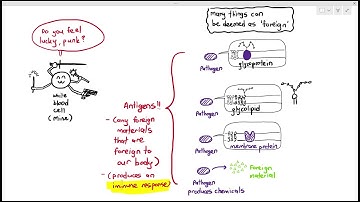 Do you feel
lucky, punk?
white
blood
cell
(Mine)
Antigens!!
- (any foreign
materials
that are
foreign to
our body)
- (produces an
immune response)
many things can
be deemed as 'foreign'
Pathogen
glycoprotein
Pathogen
glycolipid
Pathogen
membrane protein
Pathogen
produces chemicals
Foreign
material